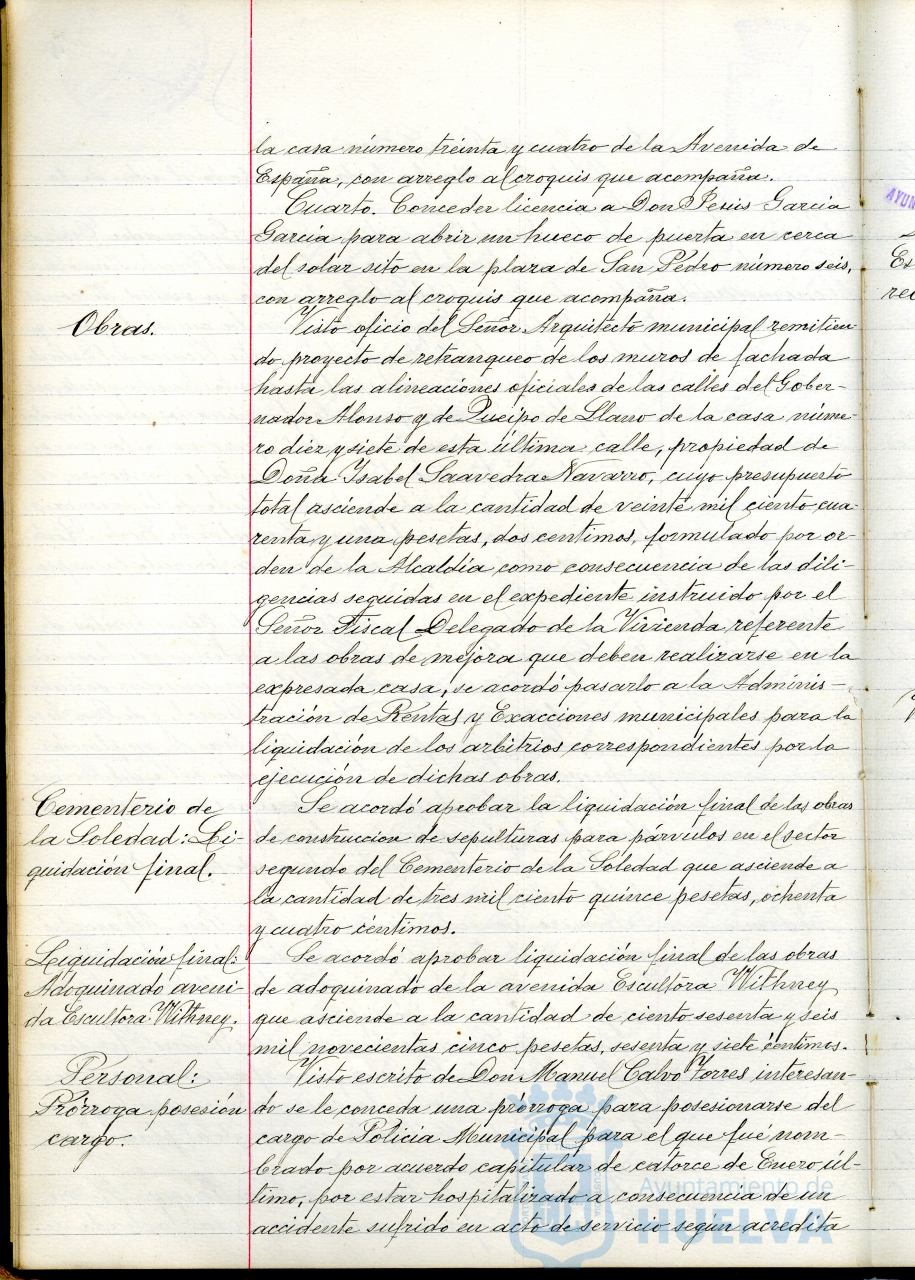 la casa número treinta y cuatro de la Avenida de
España, con arreglo al croquis que acompaña.
Cuarto. Conceder licencia a Don Jesús García
García para abrir un hueco de puerta en cerca
del solar sito en la plaza de San Pedro número seis,
con arreglo al croquis que acompaña.
Obras.
Visto oficio del Señor Arquitecto municipal remitien-
do proyecto de retranqueo de los muros de fachada
hasta las alineaciones oficiales de las calles del Gober-
nador Alonso y de Queipo de Llano de la casa núme-
ro diez y siete de esta última calle, propiedad de
Doña Ysabel Saavedra Navarro, cuyo presupuesto
total asciende a la cantidad de veinte mil ciento cua-
renta y una pesetas, dos centimos, formulado por or-
den de la Alcaldía como consecuencia de las dili-
gencias seguidas en el expediente instruido por el
Señor Fiscal Delegado de la Vivienda referente
a las obras de mejora que deben realizarse en la
expresada casa, se acordó pasarlo a la Adminis-
tración de Rentas y Exacciones municipales para la
liquidación de los arbitrios correspondientes por la
ejecución de dichas obras.
Cementerio de
la Soledad: Li-
quidación final.
Se acordó aprobar la liquidación final de las obras
de construccion de sepulturas para párvulos en el sector
segundo del Cementerio de la Soledad que asciende a
la cantidad de tres mil ciento quince pesetas, ochenta
y cuatro céntimos.
Liquidación final:
Adoquinado aveni-
da Escultora Withney.
Se acordó aprobar liquidación final de las obras
de adoquinado de la avenida Escultora Withney
que asciende a la cantidad de ciento sesenta y seis
mil novecientas cinco pesetas, sesenta y siete céntimos.
Personal:
Prórroga posesión
cargo.
Visto escrito de Don Manuel Calvo Torres interesan-
do se le conceda una prórroga para posesionarse del
cargo de Policia Municipal para el que fué nom-
brado por acuerdo capitular de catorce de Enero úl-
timo, por estar hospitalizado a consecuencia de un
accidente sufrido en acto de servicio según acredita
Ayuntamiento de
HUELVA
AYUN
Es
rec